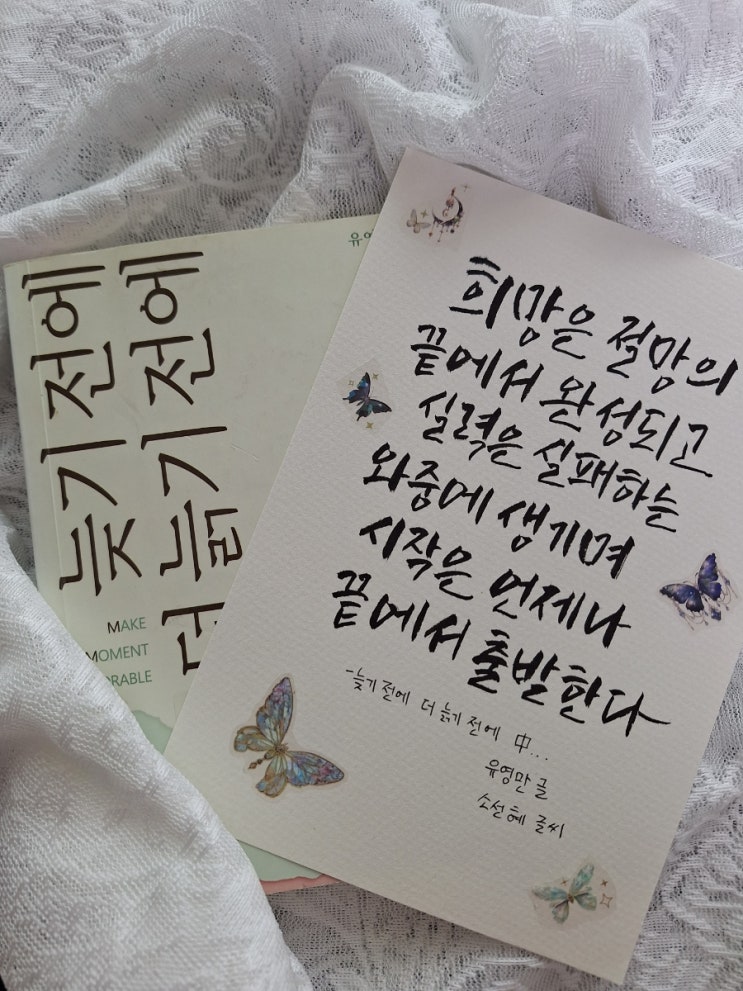 늦기 전에
더 늙기 전에
MAKE
MOMENT
ORABLE
희망은 절망의
끝에서 완성되고
실력은 실패하는
와중에 생기며
시작은 언제나
끝에서 출발한다
-늦기 전에 더 늙기 전에 中...
유영만 글
소선혜 글씨